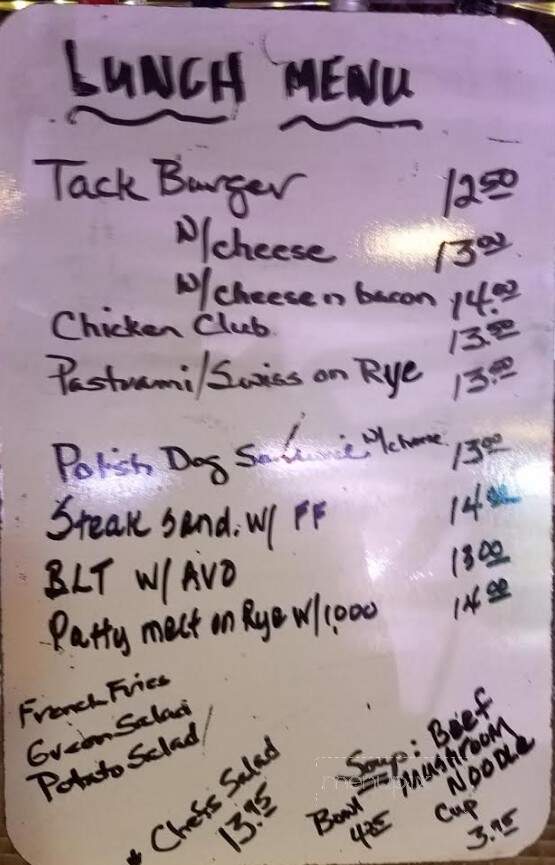 LUNCH MENU
Tack Burger 12.50
W/cheese 13.00
W/cheese n bacon 14.00
Chicken Club 13.50
Pastrami/Swiss on Rye 13.00
Polish Dog W/ 13.00
Steak Sand. W/ FF 14.00
BLT W/ AVO 13.00
Patty melt on Rye W/1,000 14.00
French Fries
Green Salad
Potato Salad/
Chefs Salad
13.95
Soup: BEEF
MUSHROOM
NOODLE
Bowl
4.25
Cup
3.95